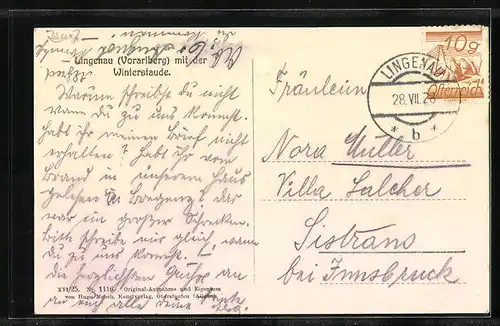 Lingenau (Vorarlberg) mit der
Winterstaude.
Warum schreibst du nicht
wann du zu uns kommst.
habt ihr meinen Brief nicht
erhalten? habt ihr vom
Brand in unserem Haus
gelesen
war ein großer Schrecken.
Bitte schreibe mir gleich, wann
du zu uns kommst.
die herzlichsten Grüße an
euch alle deine Tante
XVI/25. Nr. 1116. Original-Aufnahme und Eigentum
Kunstverlag, Oberstaufen (Allgäu)
Fräulein
Nora Müller
Villa Salcher
Sistrans
bei Innsbruck
LINGENAU
28.VII.28
* b *
10g
Österreich